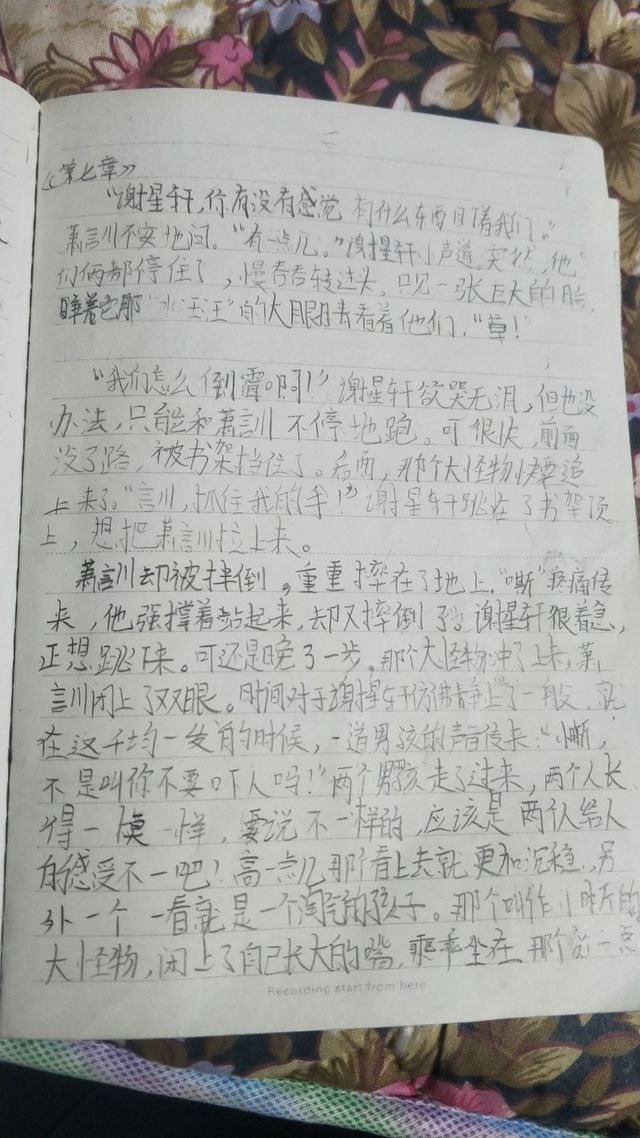 《第七章》
“谢星轩，你有没有感觉 有什么东西目着我们。”
萧訔川不安地问。“有一点儿。”谢星轩小声道。突然，他
们俩都停住了，慢吞吞转过头。只见一张巨大的脸，
睁着它那“水汪汪”的大眼睛看着他们，“草！
“我们怎么倒霉啊！”谢星轩欲哭无泪，但也没
办法，只能和萧訔川不停地跑。可很快，前面
没了路，被书架挡住了。后面，那个大怪物快要追
上来了。“訔川，抓住我的手！”谢星轩跳在了书架顶
上，想把萧訔川拉上来。
萧訔川却被拌倒，重重摔在了地上，“嘶”疼痛传
来，他强撑着站起来，却又摔倒了。谢星轩很着急，
正想跳下来。可还是晚了一步，那个大怪物冲了上来，萧
訔川闭上了双眼。时间对于谢星轩仿佛静止了一般，就
在这千均一发的时候，一道男孩的声音传来：“小晰，
不是叫你不要吓人吗！”两个男孩走了过来，两个人长
得一模一样，要说不一样的，应该是两人给人
的感受不一吧！高一点儿那个看上去就更加沉稳，另
外一个一看就是一个淘气的孩子。那个叫作小晰的
大怪物，闭上了自己长大的嘴，乖乖坐在那个高一点
Recording start from here